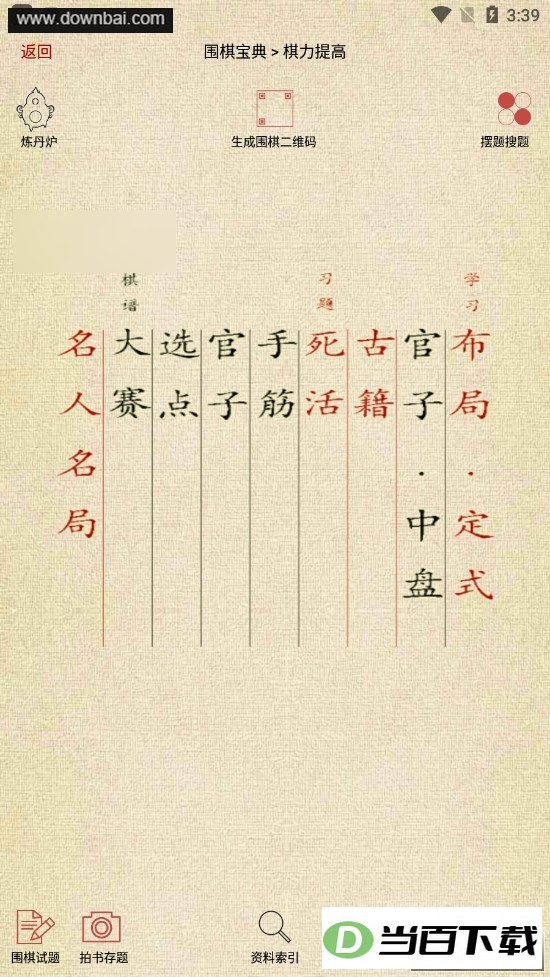 www.downbai.com
3:39
返回
围棋宝典 > 棋力提高
炼丹炉
生成围棋二维码
摆题搜题
学习
布局·定式
官子·中盘
古籍
习题
死活
手筋
官子
选点
棋谱
大赛
名人名局
围棋试题
拍书存题
资料索引
D当百下载